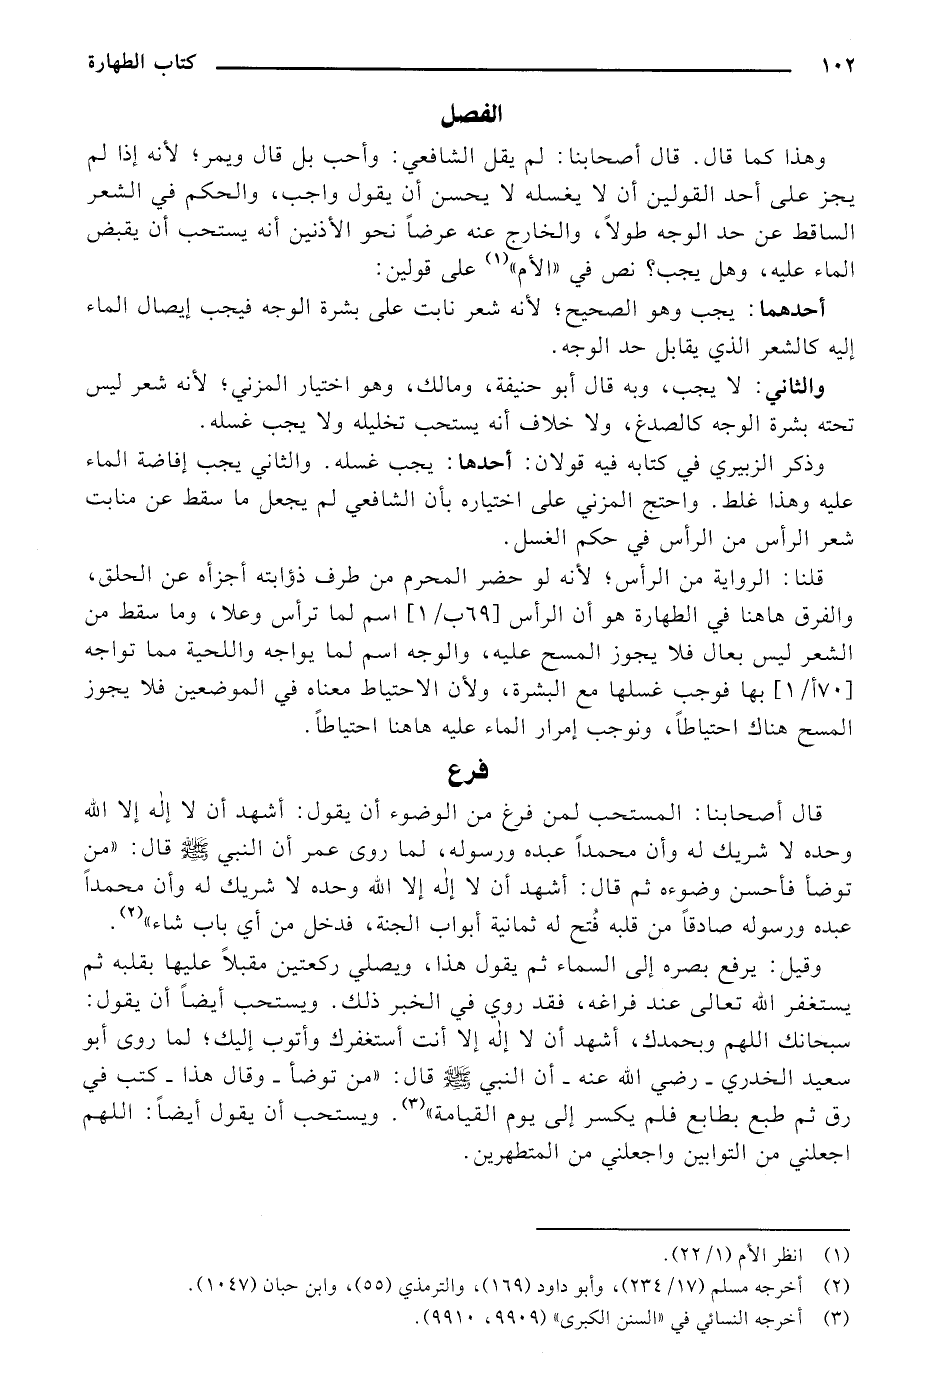 ١٠٢ كتاب الطهارة
الفصل
وهذا كما قال. قال أصحابنا: لم يقل الشافعي: وأحب بل قال ويمر؛ لأنه إذا لم
يجز على أحد القولين أن لا يغسله لا يحسن أن يقول واجب، والحكم في الشعر
الساقط عن حد الوجه طولاً، والخارج عنه عرضاً نحو الأذنين أنه يستحب أن يقبض
الماء عليه، وهل يجب؟ نص في «الأم»(١) على قولين:
أحدهما: يجب وهو الصحيح؛ لأنه شعر نابت على بشرة الوجه فيجب إيصال الماء
إليه كالشعر الذي يقابل حد الوجه.
والثاني: لا يجب، وبه قال أبو حنيفة، ومالك، وهو اختيار المزني؛ لأنه شعر ليس
تحته بشرة الوجه كالصدغ، ولا خلاف أنه يستحب تخليله ولا يجب غسله.
وذكر الزبيري في كتابه فيه قولان: أحدها: يجب غسله. والثاني يجب إفاضة الماء
عليه وهذا غلط. واحتج المزني على اختياره بأن الشافعي لم يجعل ما سقط عن منابت
شعر الرأس من الرأس في حكم الغسل.
قلنا: الرواية من الرأس؛ لأنه لو حضر المحرم من طرف ذؤابته أجزأه عن الحلق،
والفرق هاهنا في الطهارة هو أن الرأس [٦٩ب/ ١] اسم لما ترأس وعلا، وما سقط من
الشعر ليس بعال فلا يجوز المسح عليه، والوجه اسم لما يواجه واللحية مما تواجه
[٧٠أ/ ١] بها فوجب غسلها مع البشرة، ولأن الاحتياط معناه في الموضعين فلا يجوز
المسح هناك احتياطاً، ونوجب إمرار الماء عليه هاهنا احتياطاً.
فرع
قال أصحابنا: المستحب لمن فرغ من الوضوء أن يقول: أشهد أن لا إلٰه إلا الله
وحده لا شريك له وأن محمداً عبده ورسوله، لما روى عمر أن النبي ﷺ قال: «من
توضأ فأحسن وضوءه ثم قال: أشهد أن لا إلٰه إلا الله وحده لا شريك له وأن محمداً
عبده ورسوله صادقاً من قلبه فُتح له ثمانية أبواب الجنة، فدخل من أي باب شاء»(٢).
وقيل: يرفع بصره إلى السماء ثم يقول هذا، ويصلي ركعتين مقبلاً عليها بقلبه ثم
يستغفر الله تعالى عند فراغه، فقد روي في الخبر ذلك. ويستحب أيضاً أن يقول:
سبحانك اللهم وبحمدك، أشهد أن لا إلٰه إلا أنت أستغفرك وأتوب إليك؛ لما روى أبو
سعيد الخدري ـ رضي الله عنه ـ أن النبي ﷺ قال: «من توضأ ـ وقال هذا ـ كتب في
رق ثم طبع بطابع فلم يكسر إلى يوم القيامة»(٣). ويستحب أن يقول أيضاً: اللهم
اجعلني من التوابين واجعلني من المتطهرين.
(١) انظر الأم (١/ ٢٢).
(٢) أخرجه مسلم (١٧/ ٢٣٤)، وأبو داود (١٦٩)، والترمذي (٥٥)، وابن حبان (١٠٤٧).
(٣) أخرجه النسائي في «السنن الكبرى» (٩٩٠٩، ٩٩١٠).